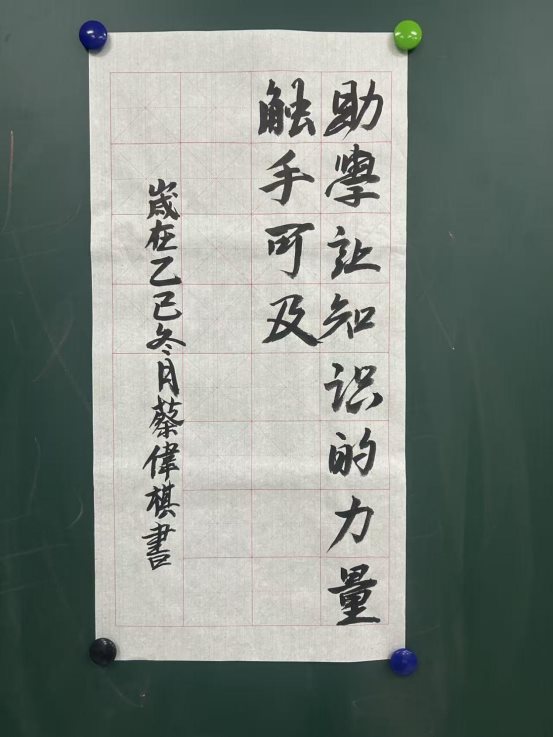 助學让知识的力量
触手可及
歲在乙巳冬月蔡偉棋書